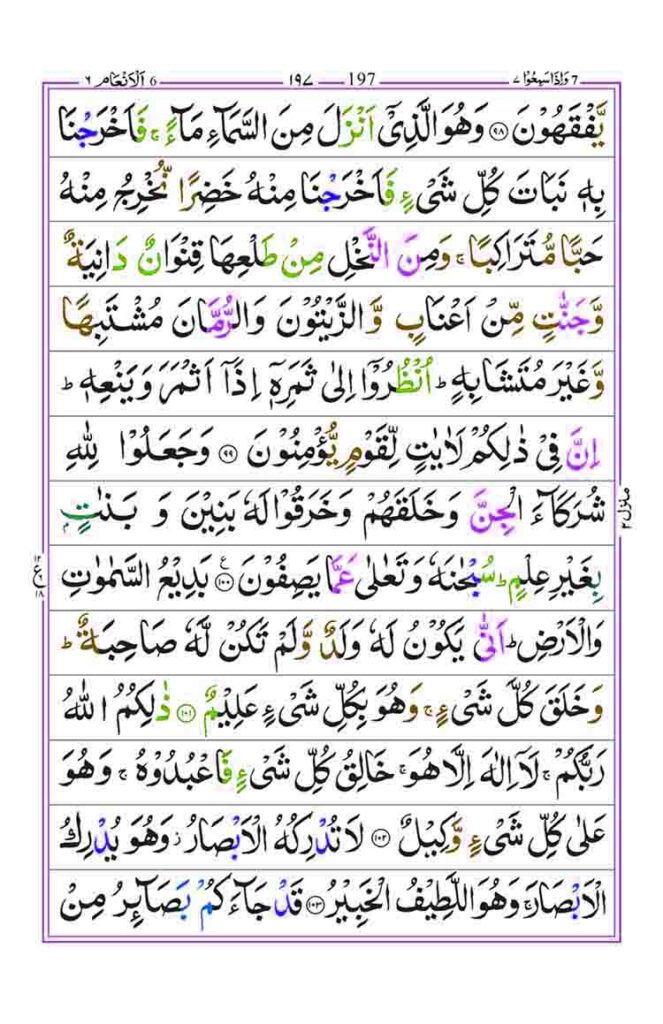 7 وَاِذَا سَمِعُوْا ٧ 197 ١٩٧ 6 اَلْاَنْعَام ٦
يَّفْقَهُوْنَ ۝٩٨ وَهُوَ الَّذِيْۤ اَنْزَلَ مِنَ السَّمَآءِ مَآءً ۚ فَاَخْرَجْنَا
بِهٖ نَبَاتَ كُلِّ شَيْءٍ فَاَخْرَجْنَا مِنْهُ خَضِرًا نُّخْرِجُ مِنْهُ
حَبًّا مُّتَرَاكِبًا ۚ وَمِنَ النَّخْلِ مِنْ طَلْعِهَا قِنْوَانٌ دَانِيَةٌ
وَّجَنّٰتٍ مِّنْ اَعْنَابٍ وَّالزَّيْتُوْنَ وَالرُّمَّانَ مُشْتَبِهًا
وَّغَيْرَ مُتَشَابِهٍ ؕ اُنْظُرُوْۤا اِلٰى ثَمَرِهٖۤ اِذَاۤ اَثْمَرَ وَيَنْعِهٖ ؕ
اِنَّ فِيْ ذٰلِكُمْ لَاٰيٰتٍ لِّقَوْمٍ يُّؤْمِنُوْنَ ۝٩٩ وَجَعَلُوْا لِلّٰهِ
شُرَكَآءَ الْجِنَّ وَخَلَقَهُمْ وَخَرَقُوْا لَهٗ بَنِيْنَ وَ بَنٰتٍۭ
بِغَيْرِ عِلْمٍ ؕ سُبْحٰنَهٗ وَتَعٰلٰى عَمَّا يَصِفُوْنَ ۝١٠٠ ع بَدِيْعُ السَّمٰوٰتِ
وَالْاَرْضِ ؕ اَنّٰى يَكُوْنُ لَهٗ وَلَدٌ وَّلَمْ تَكُنْ لَّهٗ صَاحِبَةٌ ؕ
وَخَلَقَ كُلَّ شَيْءٍ ۚ وَهُوَ بِكُلِّ شَيْءٍ عَلِيْمٌ ۝١٠١ ذٰلِكُمُ اللّٰهُ
رَبُّكُمْ ۚ لَاۤ اِلٰهَ اِلَّا هُوَ ۚ خَالِقُ كُلِّ شَيْءٍ فَاعْبُدُوْهُ ۚ وَهُوَ
عَلٰى كُلِّ شَيْءٍ وَّكِيْلٌ ۝١٠٢ لَا تُدْرِكُهُ الْاَبْصَارُ ؗ وَهُوَ يُدْرِكُ
الْاَبْصَارَ ۚ وَهُوَ اللَّطِيْفُ الْخَبِيْرُ ۝١٠٣ قَدْ جَآءَكُمْ بَصَآئِرُ مِنْ
منزل ٢
١٢
ع
١٨